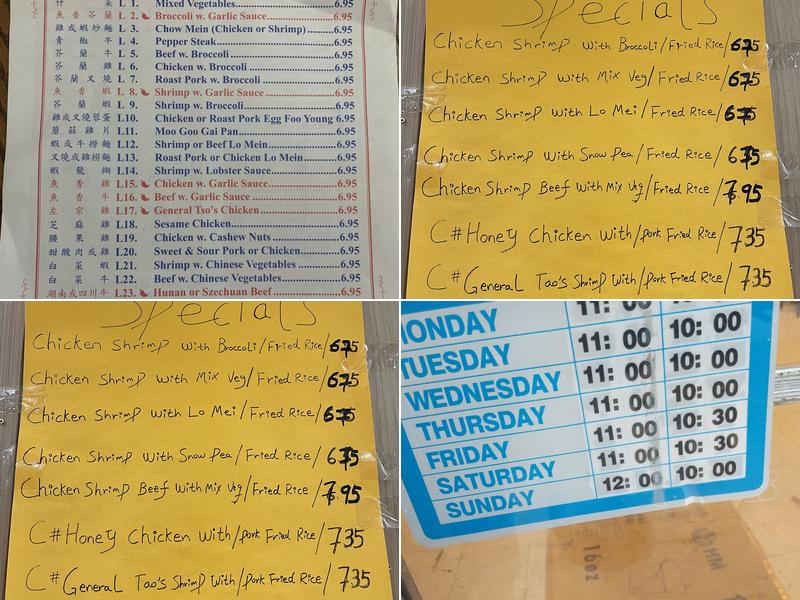 什 菜 L 1. Mixed Vegetables 6.95
魚 香 芥 蘭 L 2. Broccoli w. Garlic Sauce 6.95
雞 或 蝦 炒 麵 L 3. Chow Mein (Chicken or Shrimp) 6.95
青 椒 牛 L 4. Pepper Steak 6.95
芥 蘭 牛 L 5. Beef w. Broccoli 6.95
芥 蘭 雞 L 6. Chicken w. Broccoli 6.95
芥 蘭 叉 燒 L 7. Roast Pork w. Broccoli 6.95
魚 香 蝦 L 8. Shrimp w. Garlic Sauce 6.95
芥 蘭 蝦 L 9. Shrimp w. Broccoli 6.95
雞或叉燒蓉蛋 L10. Chicken or Roast Pork Egg Foo Young 6.95
蘑 菇 雞 片 L11. Moo Goo Gai Pan 6.95
蝦 或 牛 撈 麵 L12. Shrimp or Beef Lo Mein 6.95
叉燒或雞撈麵 L13. Roast Pork or Chicken Lo Mein 6.95
蝦 龍 糊 L14. Shrimp w. Lobster Sauce 6.95
魚 香 雞 L15. Chicken w. Garlic Sauce 6.95
魚 香 牛 L16. Beef w. Garlic Sauce 6.95
左 宗 雞 L17. General Tso's Chicken 6.95
芝 麻 雞 L18. Sesame Chicken 6.95
腰 果 雞 L19. Chicken w. Cashew Nuts 6.95
甜 酸 肉 或 雞 L20. Sweet & Sour Pork or Chicken 6.95
白 菜 蝦 L21. Shrimp w. Chinese Vegetables 6.95
白 菜 牛 L22. Beef w. Chinese Vegetables 6.95
湖南或四川牛 L23. Hunan or Szechuan Beef 6.95
Specials
Chicken Shrimp with Broccoli/Fried Rice/675
Chicken Shrimp with Mix Veg/Fried Rice/675
Chicken Shrimp with Lo Mei/Fried Rice/675
Chicken Shrimp with Snow Pea/Fried Rice/675
Chicken Shrimp Beef with Mix Veg/Fried Rice/7.95
C#Honey Chicken with/pork Fried Rice/735
C#General Tao's Shrimp with/pork Fried Rice/735
Specials
Chicken Shrimp with Broccoli/Fried Rice/675
Chicken Shrimp with Mix Veg/Fried Rice/675
Chicken Shrimp with Lo Mei/Fried Rice/675
Chicken Shrimp with Snow Pea/Fried Rice/675
Chicken Shrimp Beef with Mix Veg/Fried Rice/7.95
C#Honey Chicken with/pork Fried Rice/735
C#General Tao's Shrimp with/pork Fried Rice/735
MONDAY 11: 00 10: 00
TUESDAY 11: 00 10: 00
WEDNESDAY 11: 00 10: 00
THURSDAY 11: 00 10: 00
FRIDAY 11: 00 10: 30
SATURDAY 11: 00 10: 30
SUNDAY 12: 00 10: 00
16oz